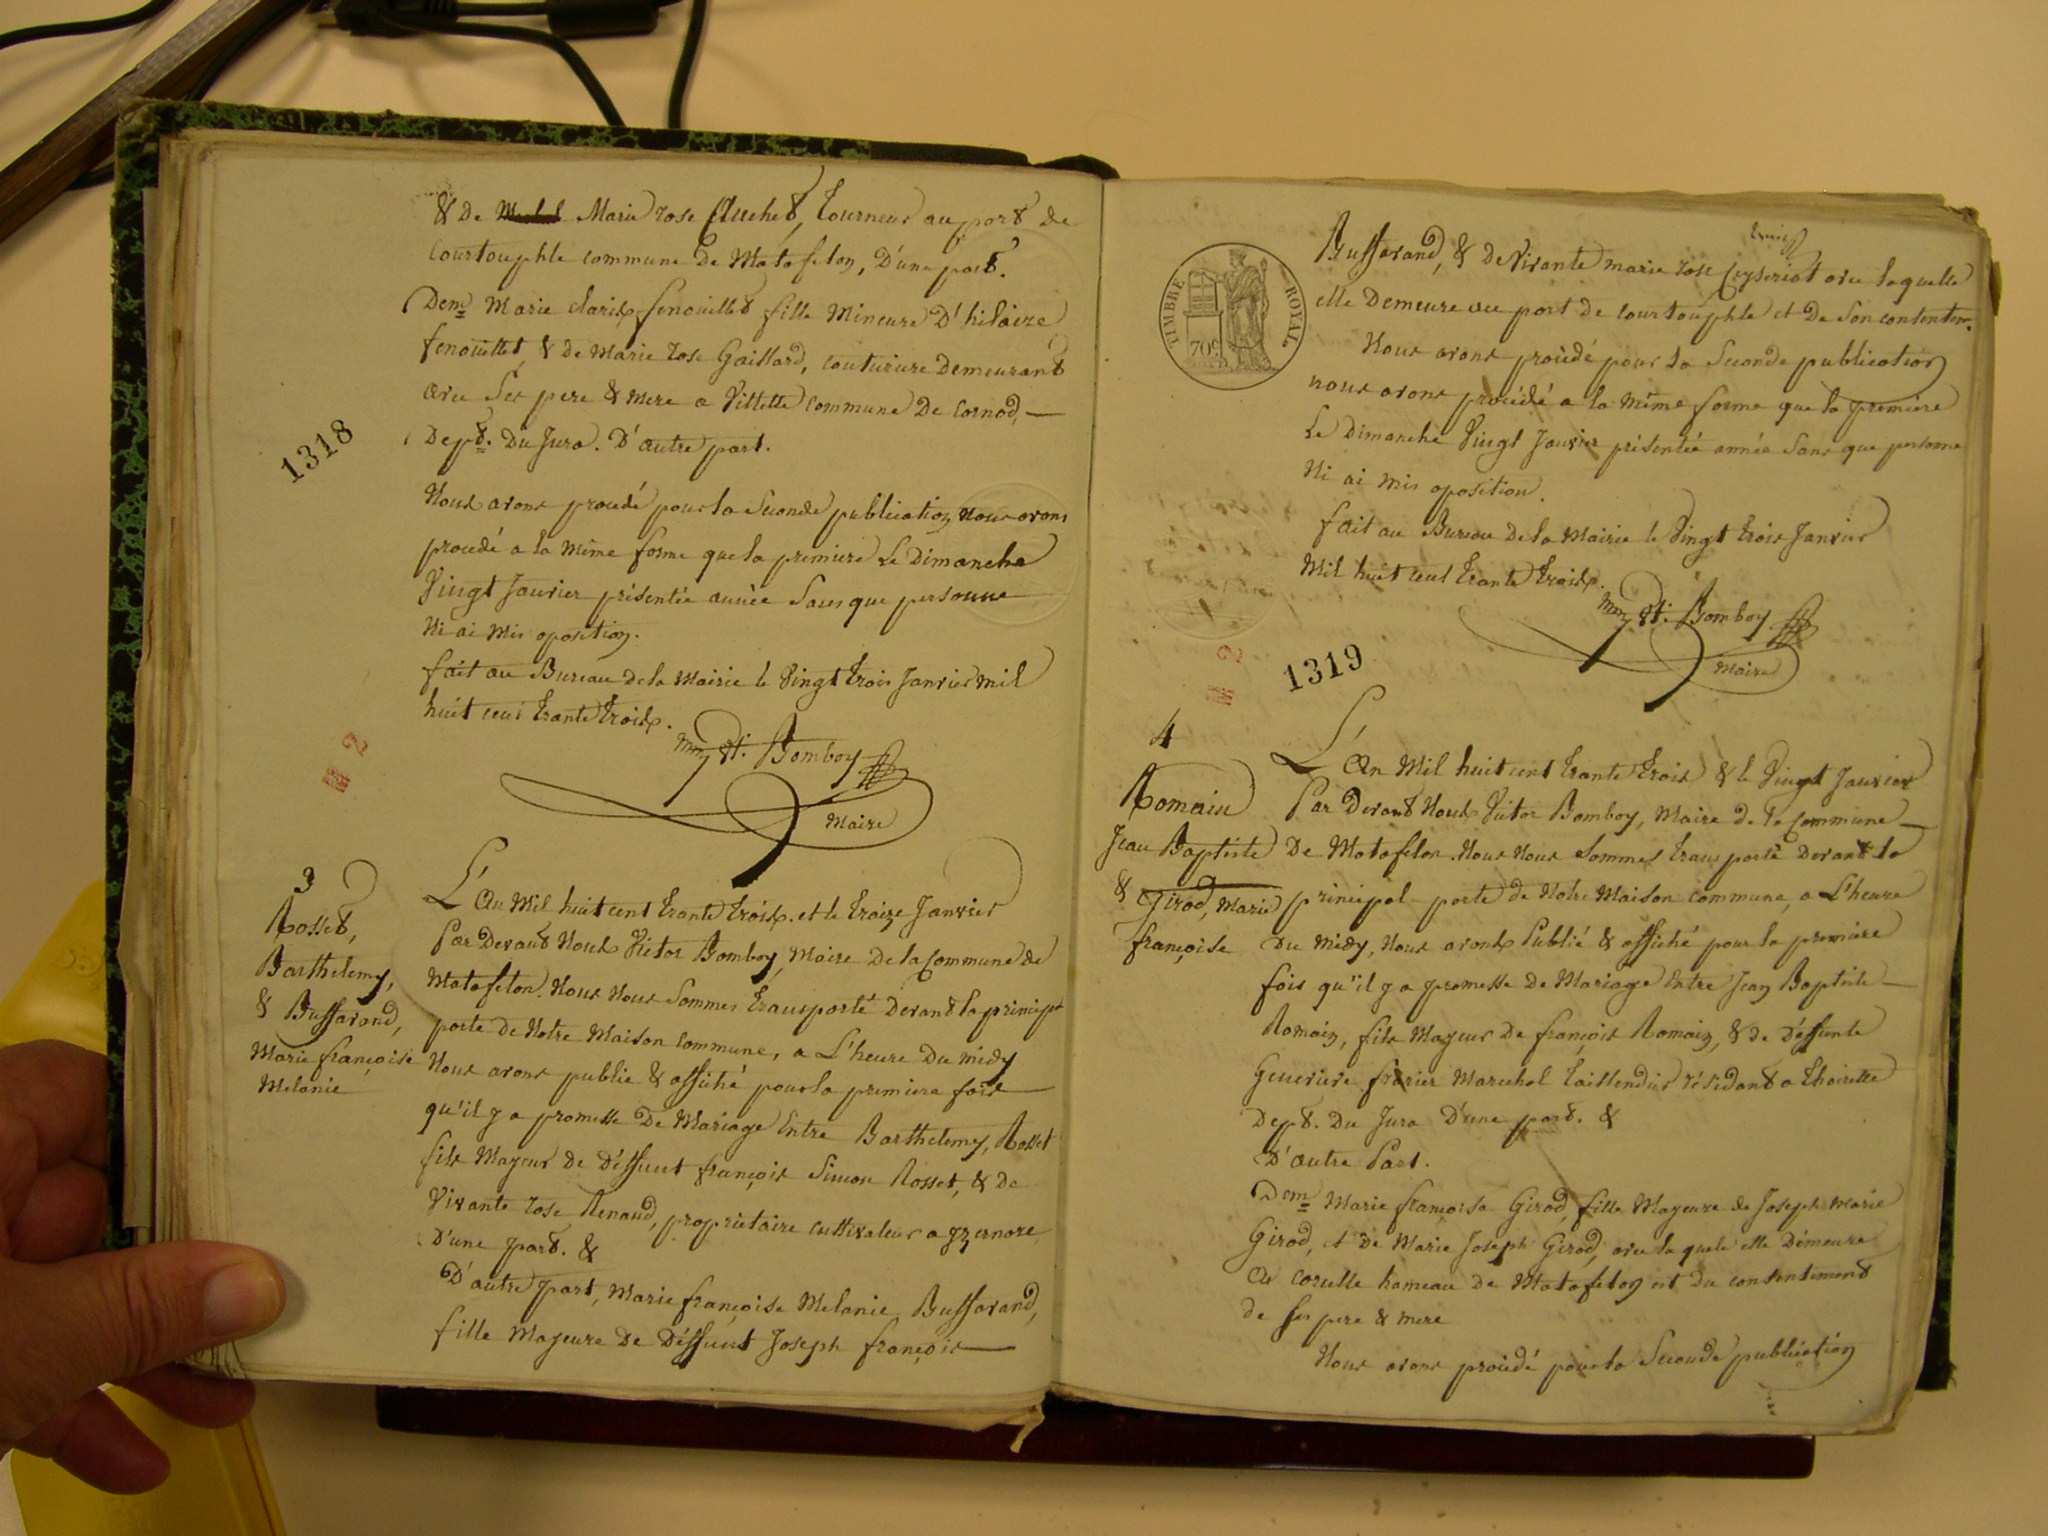 & de Marie rose Cluchet, tourneur au port de
Courtouphle commune de Matafelon, D'une part.
Dem.lle Marie clarix fenouillet fille Mineure D'hilaire
fenouillet, & de Marie Rose Gaillard, couturiere Demeurant
avec Ses pere & mere a Villette commune De Cornod,
1318
Dept. Du Jura. D'autre part.
Nous avons procédé pour la Seconde publication nous avons
procédé a la même forme que la premiere Le Dimanche
Vingt Janvier présentée année Sans que personne
Ni ai Mis oposition.
fait au Bureau de la Mairie le Vingt trois Janvier mil
huit cens trante troix.
Bomboy
Maire
2
3
Rosset,
Barthelemy,
& Buffavand,
Marie françoise
Melanie
L'An Mil huit cent trante troix. et le traize Janvier
Par Devant Nous Victor Bomboy, Maire De la Commune de
Matafelon. Nous Nous Sommes transporté Devant la princip.
porte de Notre Maison Commune, a L'heure Du midy
Nous avons publié & affiché pour la premiere fois
qu'il y a promesse De Mariage Entre Barthelemy, Rosset
fils Mayeur de Déffunt françois Simon Rosset, & de
Vivante Rose Renaud, propriétaire cultivateur a yzernore
D'une part. &
D'autre part, Marie françoise Melanie Buffavand,
fille Mayeure De Déffunt Joseph françois
TIMBRE ROYAL
70c
Buffavand, & De Vivante marie Rose Ceyseriat avec laquelle
elle Demeure au port de Courtouphle et De Son contentem.
Nous avons procédé pour la Seconde publication
nous avons procédé a la même forme que la premiere
Le Dimanche Vingt Janvier présentée année Sans que personne
Ni ai Mis oposition.
fait au Bureau de la Mairie le Vingt trois Janvier
Mil huit cens trante troix.
Bomboy
Maire
2
1319
4
Romain
Jean Baptiste
& Girod, Marie
françoise
L'An Mil huit cent trante trois & le Vingt Janvier
Par Devant Nous Victor Bomboy, Maire de la Commune
De Matafelon. Nous Nous Sommes transporté Devant la
principal porte de Notre Maison commune, a L'heure
Du midy, Nous avons Publié & affiché pour la premiere
fois qu'il y a promesse De Mariage Entre Jean Baptiste
Romain, fils Mayeur De françois Romain, & de Déffunte
Genevieve frarier Marechal taillendier résidant a thoirette
Dept. Du Jura D'une part. &
D'autre Part.
Dem.lle Marie françoise Girod, fille Mayeure de Joseph Marie
Girod, et De Marie Joseph Girod, avec la quele elle Démeure
Au Corcelle hameau De Matafelon et Du consentement
de Ses pere & mere
Nous avons procédé pour la Seconde publication